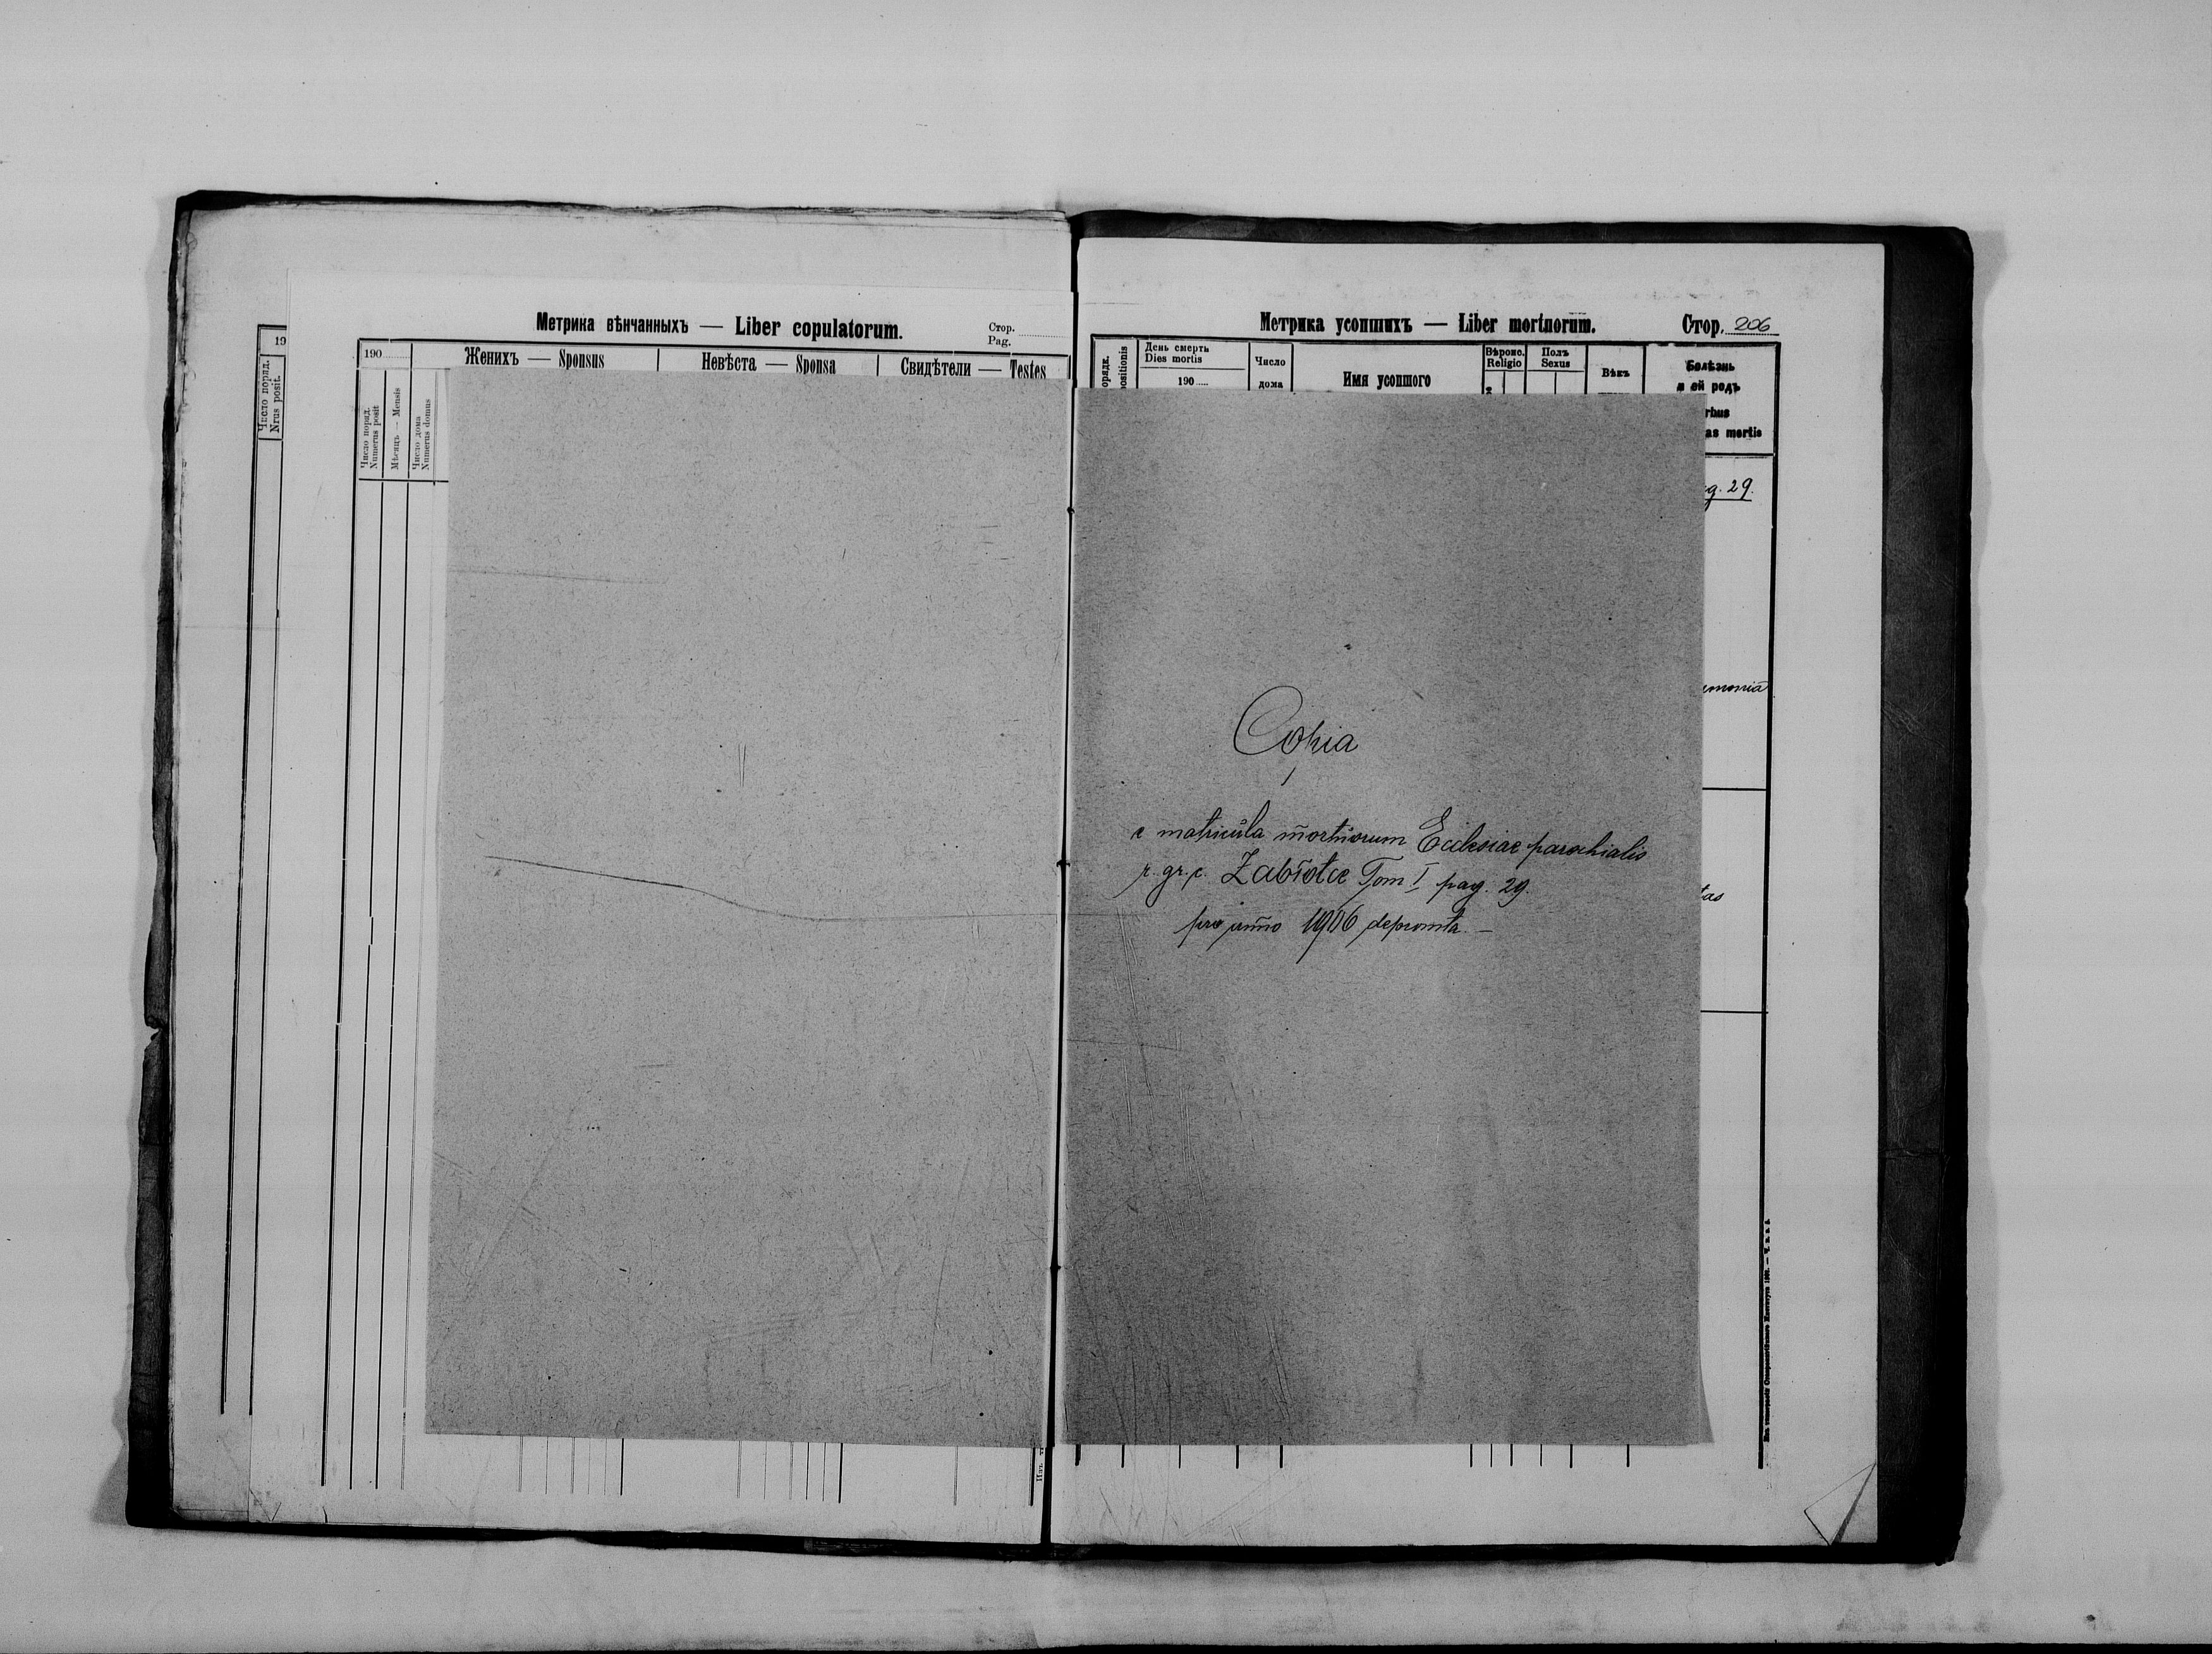 19
Число поряд.
Nrus posit.
Метрика вѣнчанныхъ — Liber copulatorum.
Стор.
Pag.
190
Женихъ — Sponsus
Невѣста — Sponsa
Свидѣтели — Testes
Число поряд.
Numerus posit
Мѣсяцъ — Mensis
Число дома
Numerus domus
Метрика усопшихъ — Liber mortuorum.
Стор. 206
орядк.
positionis
День смерть
Dies mortis
190
Число
дома
Имя усопшого
Вѣроис.
Religio
Полъ
Sexus
Вѣкъ
Болѣзнь
и ей родъ
rbus
as mortis
g. 29.
Copia
e matricula mortuorum Ecclesiae parochialis
r. gr. c. Zabłotce Tom I pag. 29.
pro anno 1906 depromta. —
monia
tas